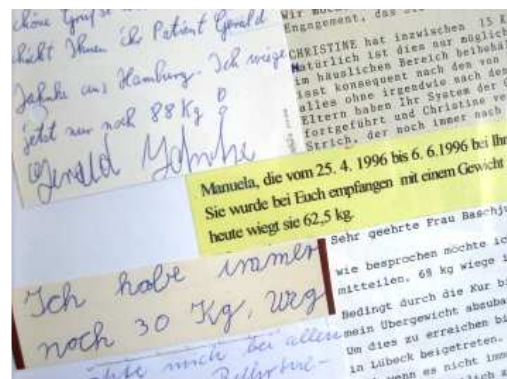 schöne Grüße
schickt Ihnen ihr Patient Gerald
Jahnke aus Hamburg. Ich wiege
jetzt nur noch 88 Kg
Gerald Jahnke
Engagement, das Sie
CHRISTINE hat inzwischen 15 K
Natürlich ist dies nur möglich
im häuslichen Bereich beibehal
isst konsequent nach den von
alles ohne irgendwie nach dem
Eltern haben Ihr System der
fortgeführt und Christine ve
Strich, der noch immer nach
Manuela, die vom 25. 4. 1996 bis 6. 6.1996 bei Ihn
Sie wurde bei Euch empfangen mit einem Gewicht
heute wiegt sie 62,5 kg.
Ich habe immer
noch 30 Kg. weg
mich bei allen
Sehr geehrte Frau Baschju
wie besprochen möchte ic
mitteilen, 68 kg wiege i
Bedingt durch die Kur bi
mein Übergewicht abzuba
Um dies zu erreichen bi
in Lübeck beigetreten.
wenn es nicht imm